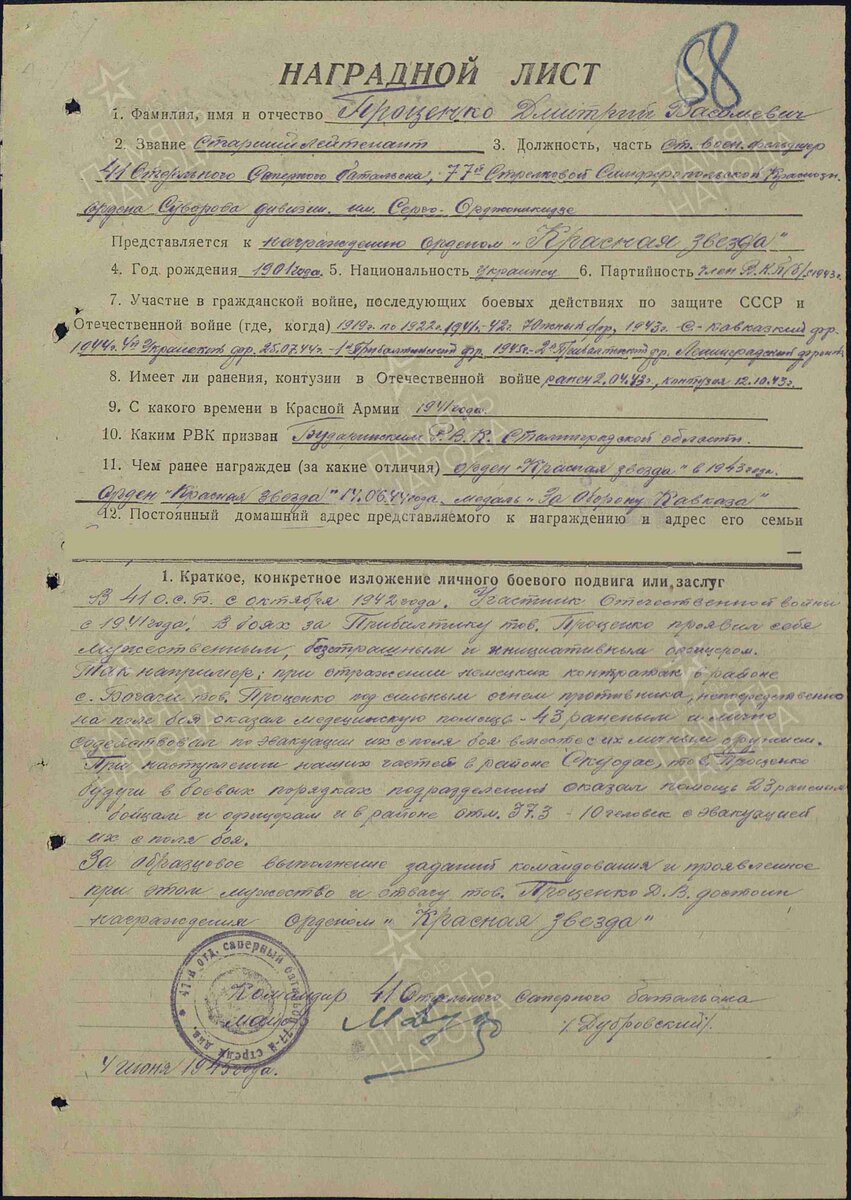 58
НАГРАДНОЙ ЛИСТ
1. Фамилия, имя и отчество Проценко Дмитрий
2. Звание Старший лейтенант 3. Должность, часть ст. воен. фельдшер
41 Отдельного Саперного батальона, 77й Стрелковой Симферопольской Краснозн.
ордена Суворова дивизии им. Серго Орджоникидзе
Представляется к награждению орденом "Красная звезда"
4. Год рождения 1901 года. 5. Национальность украинец 6. Партийность член В.К.П(б) с 1943г.
7. Участие в гражданской войне, последующих боевых действиях по защите СССР и
Отечественной войне (где, когда) 1919г. по 1922г. 1941г.-42г. Южный фр, 1943г. С-Кавказкий фр.
1944г. 4й Украинский фр. 25.07.44г.-1й Прибалтийский фр. 1945г.-2й Прибалтийский фр. Ленинградский фронт
8. Имеет ли ранения, контузии в Отечественной войне ранен 2.04.43г, контузия 12.10.43г.
9. С какого времени в Красной Армии 1941 года.
10. Каким РВК призван Бударинским Р.В.К. Сталинградской области.
11. Чем ранее награжден (за какие отличия) орден "Красная звезда" в 1943 года.
Орден "Красная звезда" 17.06.44 года. медаль "За Оборону Кавказа"
12. Постоянный домашний адрес представляемого к награждению и адрес его семьи
1. Краткое, конкретное изложение личного боевого подвига или заслуг
В 41 О.С.Б. с октября 1942 года. Участник Отечественной войны
с 1941 года. В боях за Прибалтику тов. Проценко проявил себя
мужественным, безстрашным и инициативным офицером.
Так например: при отражении немецких контратак в районе
с. Богачи тов. Проценко под сильным огнем противника, непосредственно
на поле боя оказал медецинскую помощь - 43 раненым и лично
содействовал по эвакуации их с поля боя вместе с их личным оружием.
При наступлении наших частей в районе Скуодас, тов. Проценко
будучи в боевых порядках подразделений оказал помощь 23 раненым
бойцам и офицерам и в районе отм. 37.3 - 10 человек с эвакуацией
их с поля боя.
За образцовое выполнение заданий командования и проявленное
при этом мужество и отвагу тов. Проценко Д.В. достоин
награждения орденом "Красная звезда"
41-й отд. саперный батальон 77-й стрелк. див.
Командир 41 Отдельного Саперного батальона
Майор /Дубровский/.
4 июня 1945 года.
ПАМЯТЬ НАРОДА